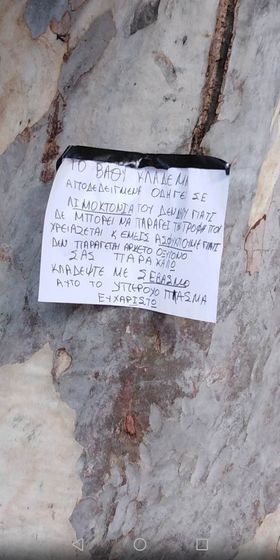 ΤΟ ΒΑΘΥ ΚΛΑΔΕΜΑ
ΑΠΟΔΕΔΕΙΓΜΕΝΑ ΟΔΗΓΕΙ ΣΕ
ΛΙΜΟΚΤΟΝΙΑ ΤΟΥ ΔΕΝΔΡΟΥ ΓΙΑΤΙ
ΔΕ ΜΠΟΡΕΙ ΝΑ ΠΑΡΑΓΕΙ ΤΗ ΤΡΟΦΗ ΠΟΥ
ΧΡΕΙΑΖΕΤΑΙ Κ ΕΜΕΙΣ ΑΣΦΥΚΤΙΟΥΜΕ ΓΙΑΤΙ
ΔΕΝ ΠΑΡΑΓΕΤΑΙ ΑΡΚΕΤΟ ΟΞΥΓΟΝΟ
ΣΑΣ ΠΑΡΑΚΑΛΩ
ΚΛΑΔΕΨΤΕ ΜΕ ΣΕΒΑΣΜΟ
ΑΥΤΟ ΤΟ ΥΠΕΡΟΧΟ ΠΛΑΣΜΑ
ΕΥΧΑΡΙΣΤΩ